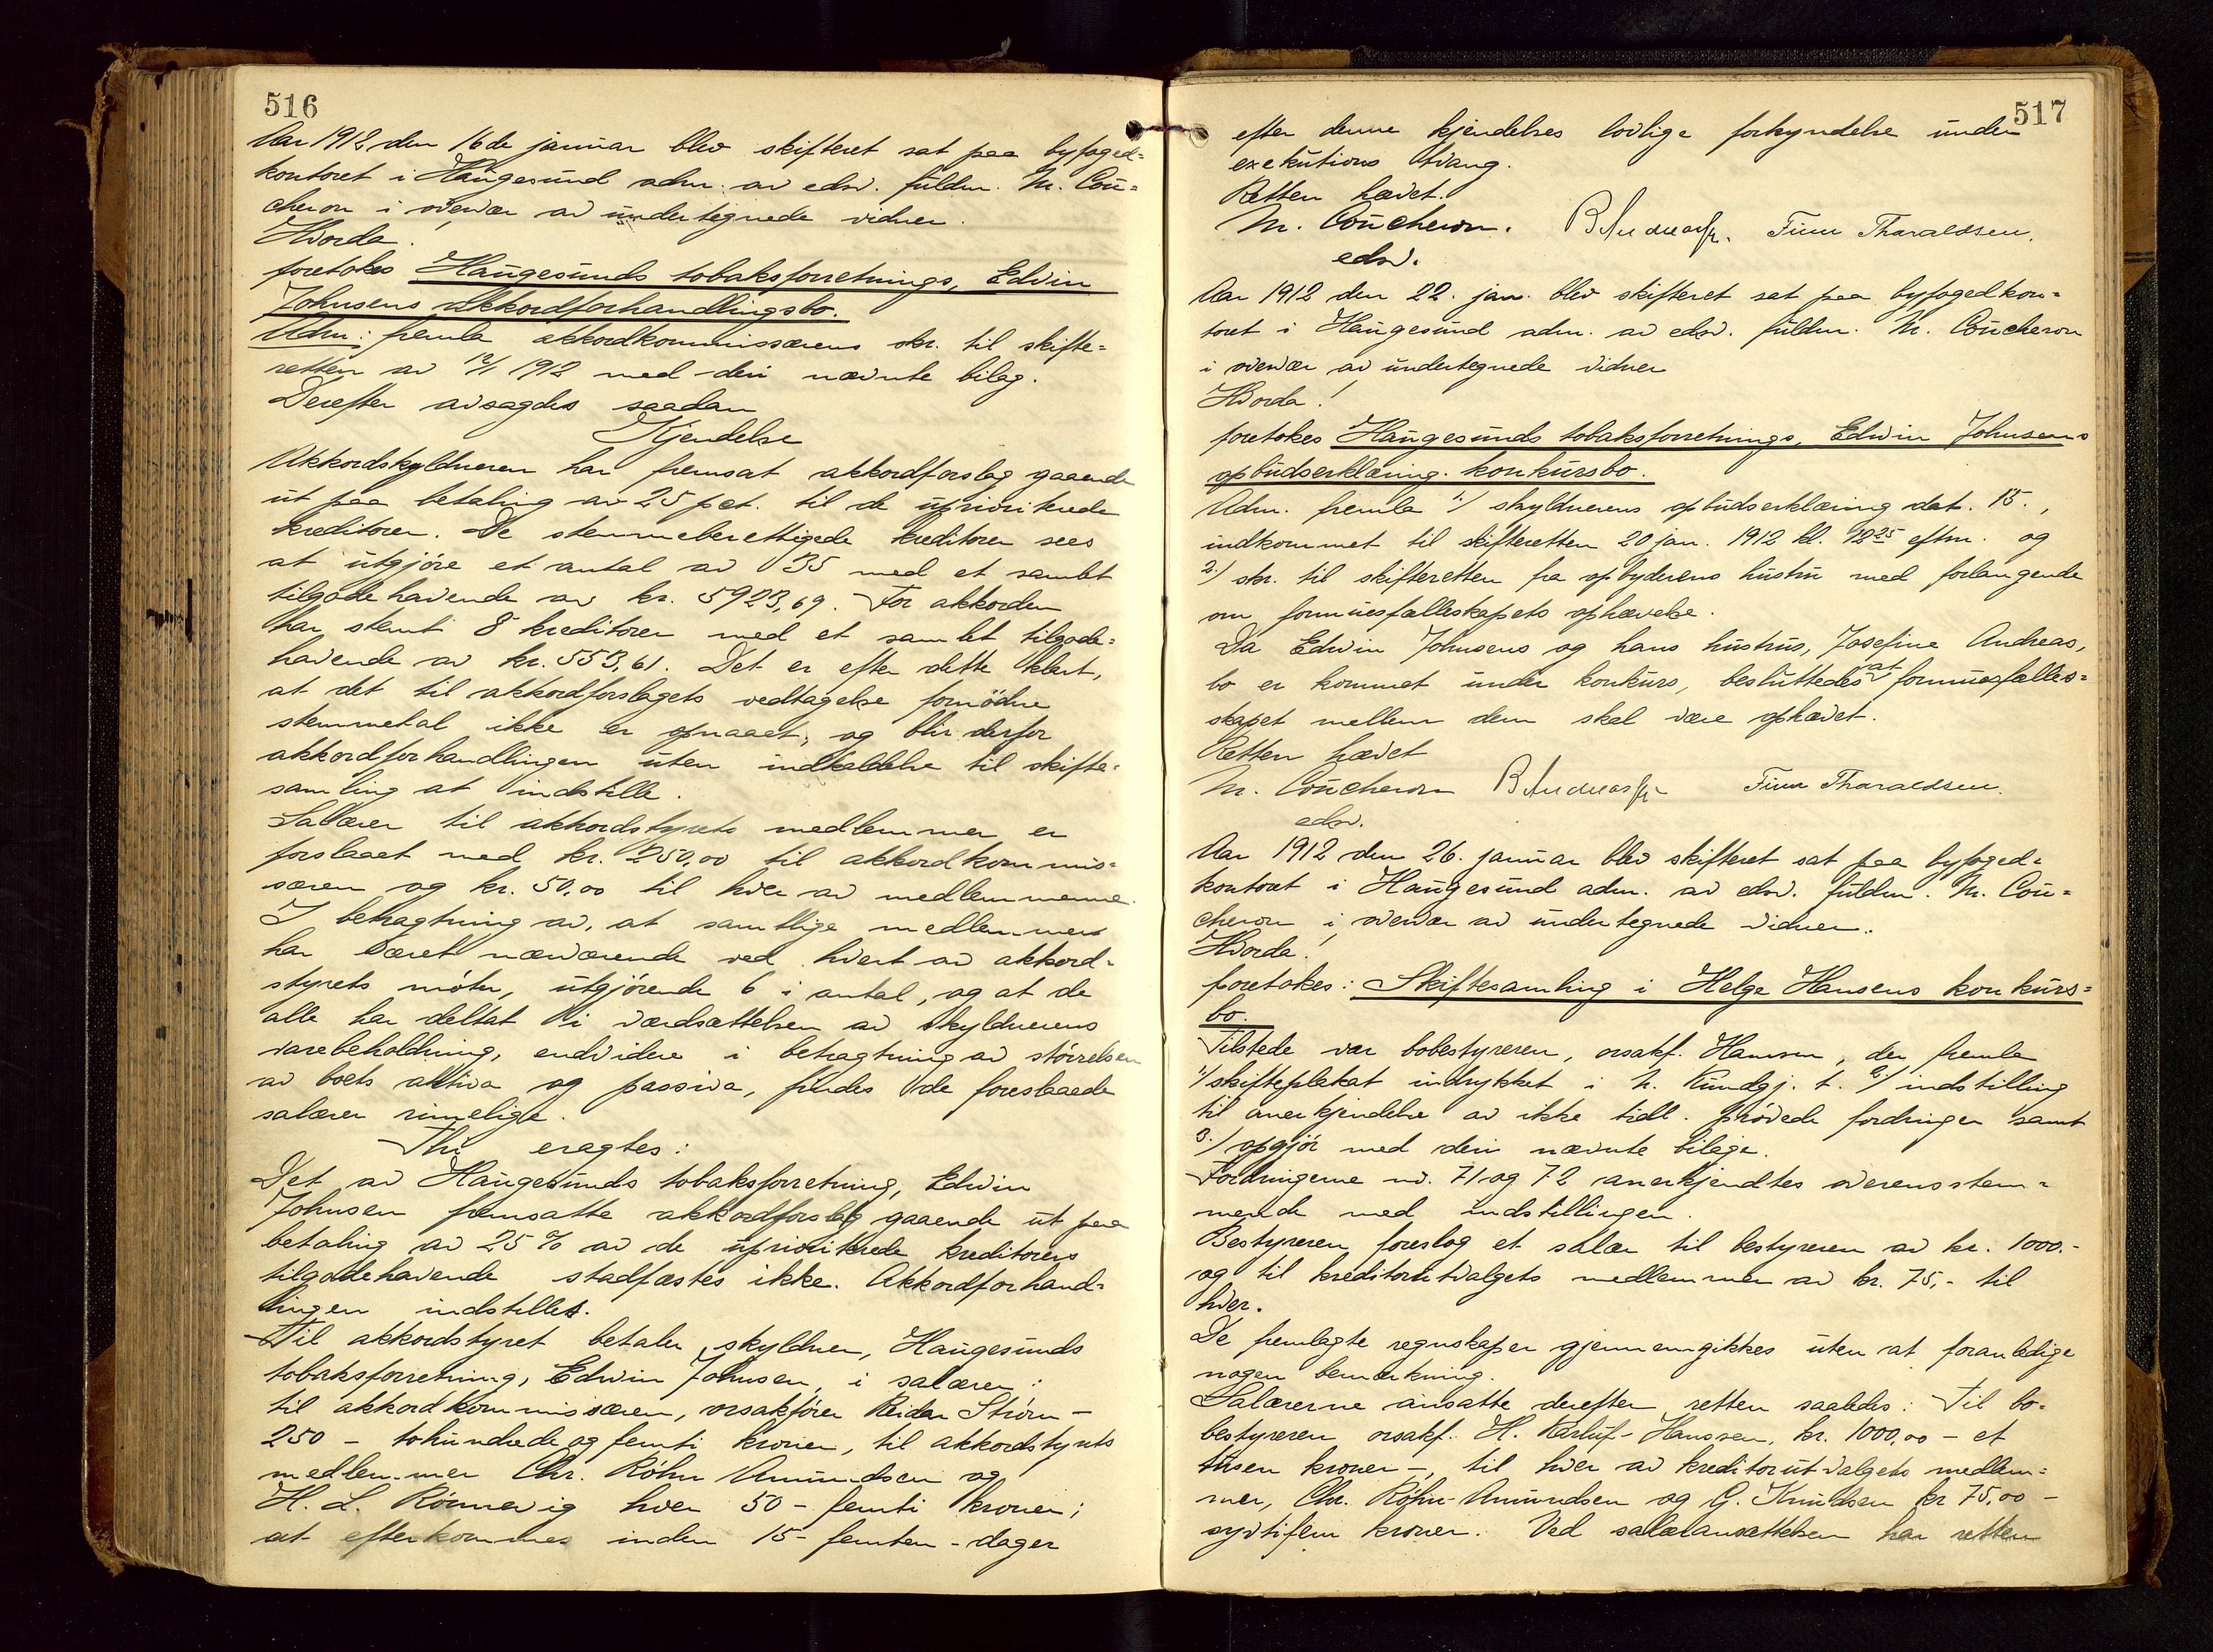 516
Aar 1912 den 16de januar blev skifteret sat paa byfoged=
kontoret i Haugesund adm. av edsv. fuldm. M. Cou=
cheron i overvær av undertegnede vidner.
Hvorda!
foretokes Haugesunds tobaksforretnings, Edvin
Johnsens akkordforhandlingsbo.
Adm. fremla akkordkommissærens skr. til skifte=
retten av 12/1 1912 med deri nævnte bilag.
Derefter avsagdes saadan
Kjendelse
Akkordskyldneren har fremsat akkordforslag gaaende
ut paa betaling av 25 pct. til de uprioriterede
kreditorer. De stemmeberettigede kreditorer sees
at utgjöre et antal av 35 med et samlet
tilgodehavende av kr. 5923,69. For akkorden
har stemt 8 kreditorer med et samlet tilgode=
havende av kr. 553,61. Det er efter dette klart,
at det til akkordforslagets vedtagelse fornödne
stemmetal ikke er opnaaet, og blir derfor
akkordforhandlingen uten indkaldelse til skifte=
samling at indstille.
Salærer til akkordstyrets medlemmer er
forslaaet med kr. 250,00 til akkordkommis=
særen og kr. 50,00 til hver av medlemmerne.
I betragtning av, at samtlige medlemmer
har været nærværende ved hvert av akkord=
styrets möter, utgjörende 6 i antal, og at de
alle har deltat i værdsættelsen av skyldnerens
varebeholdning, endvidere i betragtning av störrelsen
av boets aktiva og passiva, findes de foreslaaede
salærer rimelige.
Thi eragtes:
Det av Haugesunds tobaksforretning, Edvin
Johnsen fremsatte akkordforslag gaaende ut paa
betaling av 25 % av de uprioriterede kreditorers
tilgodehavende stadfæstes ikke. Akkordforhand=
lingen indstilles.
Til akkordstyret betaler skyldner, Haugesunds
tobaksforretning, Edwin Johnsen, i salærer:
til akkordkommissæren, orsakförer Reidar Ström -
250 - tohundrede og femti kroner, til akkordstyrets
medlemmer Chr. Röhr Amundsen og
H. L. Rönnevig hver 50 - femti kroner;
at efterkommes inden 15 - femten - dager
517
efter denne kjendelses lovlige forkyndelse under
exekutions tvang.
Retten hævet.
M. Coucheron. Finn Tharaldsen.
edsv.
Aar 1912 den 22. jan. blev skifteret sat paa byfogedkon=
toret i Haugesund adm. av edsv. fuldm. M. Coucheron
i overvær av undertegnede vidner
Hvorda!
foretokes Haugesunds tobaksforretnings, Edwin Johnsens
opbudserklæring. konkursbo.
Adm. fremla 1./ skyldnerens opbudserklæring dat. 15.,
indkommet til skifteretten 20 jan. 1912 kl. 12 25 eftm. og
2./ skr. til skifteretten fra opbyderens hustru med forlangende
om formuesfælleskapets ophævelse.
Da Edwin Johnsens og hans hustrus, Josefine Andreas,
bo er kommet under konkurs, besluttedes at formuesfælles=
skapet mellem dem skal være ophævet.
Retten hævet
M. Coucheron Finn Tharaldsen.
edsv.
Aar 1912 den 26. januar blev skifteret sat paa byfoged=
kontoret i Haugesund adm. av edsv. fuldm. M. Cou=
cheron i overvær av undertegnede vidner.
Hvorda!
foretokes: Skiftesamling i Helge Hansens konkurs=
bo.
Tilstede var bobestyreren, orsakf. Hansen, der fremla
1./ skifteplakat indrykket i N. Kundgj. t. 2./ indstilling
til anerkjendelse av ikke tidl. prövede fordringer samt
3./ opgjör med deri nævnte bilage.
Fordringerne nr. 71 og 72 anerkjendtes overensstem=
mende med indstillingen.
Bestyreren foreslog et salær til bestyreren av kr. 1000.-
og til kreditorutvalgets medlemmer av kr. 75,- til
hver.
De fremlagte regnskaper gjennemgikkes uten at foranledige
nogen bemerkning.
Salærerne ansatte derefter retten saaledes: Til bo=
bestyreren orsakf. H. Karluf-Hanssen, kr. 1000,00 - et
tusen kroner -, til hver av kreditorutvalgets medlem=
mer, Chr. Röhr-Amundsen og G. Knudsen kr 75,00 -
syvtifem kroner. Ved salæransættelsen har retten